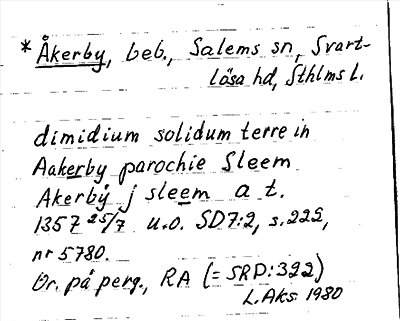 * Åkerby, beb., Salems sn, Svart-
lösa hd, Sthlms l.
dimidium solidum terre in
Aakerby parochie Sleem
Akerby j sleem a t.
1357 25/7 u.o. SD7:2, s.222,
nr 5780.
Or. på perg., RA (= SRP:322)
L.Aks 1980